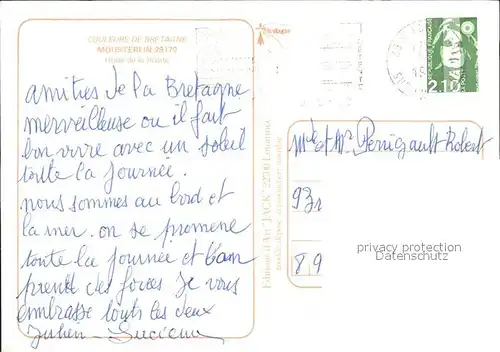 COULEURS DE BRETAGNE
MOUSTERLIN 29170
amitiés de la Bretagne
merveilleuse ou il fait
bon vivre avec un soleil
toute la journée.
nous sommes au bord et
la mer. on se promene
toute la journée et l'on
prend des forces je vous
embrasse touts les deux
Julien - Lucienne
Bretagne
Editions d'Art "JACK"
RÉPUBLIQUE FRANÇAISE
2,10
LA POSTE
et Mr Perrigault Robert
93
89
privacy protection
Datenschutz